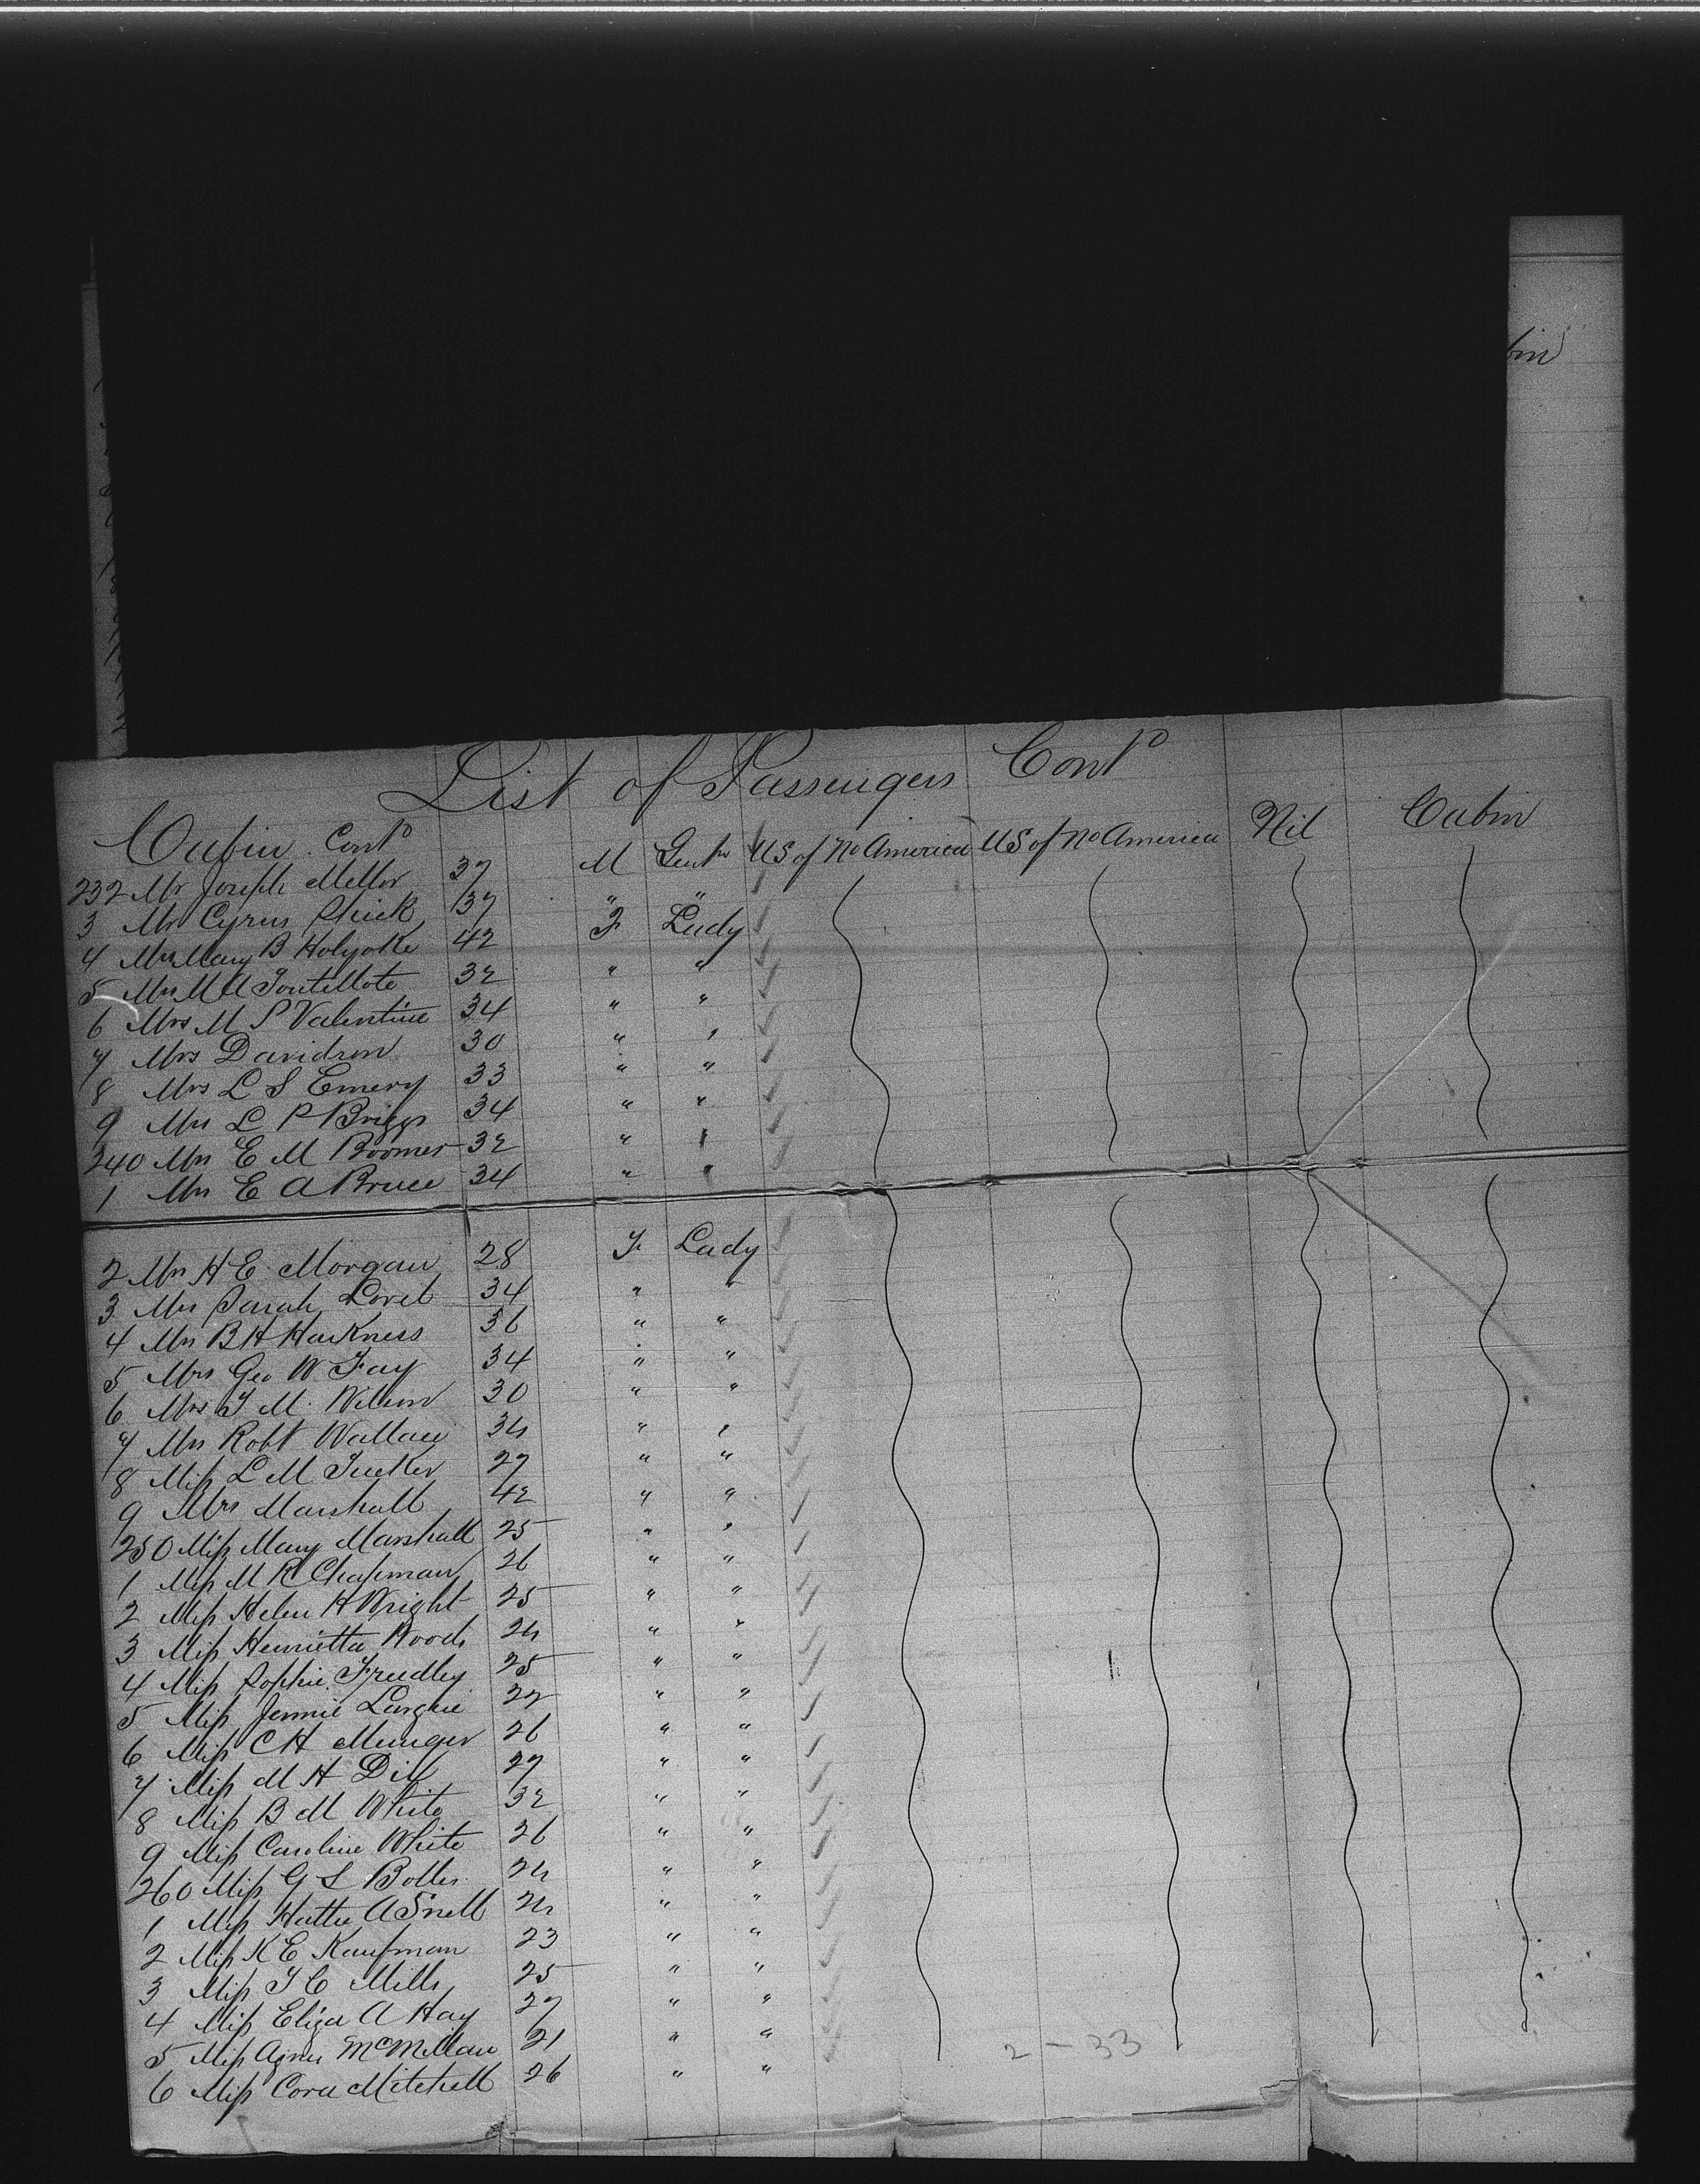 bin
List of Passengers Contd
Cabin Contd
232 Mr Joseph Mellor 37 M Gentn US of No America US of No America Nil Cabin
3 Mr Cyrus 37 " "
4 Mrs Mary B Holyoke 42 F Lady
5 Mrs M A 32 " "
6 Mrs M P Valentine 34 " "
7 Mrs Davidson 30 " "
8 Mrs L S Emery 33 " "
9 Mrs L P Briggs 34 " "
240 Mrs E M Boomer 32 " "
1 Mrs E A Bruce 34 " "
2 Mrs H E Morgan 28 F Lady
3 Mrs Sarah Loret 34 " "
4 Mrs B H Harkness 36 " "
5 Mrs Geo W Fay 34 " "
6 Mrs T M Wilson 30 " "
7 Mrs Robt Wallace 34 " "
8 Miss L M Tucker 27 " "
9 Mrs Marshall 42 " "
250 Miss Mary Marshall 25 " "
1 Miss M R Chapman 26 " "
2 Miss Helen H Wright 25 " "
3 Miss Henrietta Woods 24 " "
4 Miss Sophie Freedley 25 " "
5 Miss Jennie 22 " "
6 Miss C H Munger 26 " "
7 Miss M H Dill 27 " "
8 Miss B M White 32 " "
9 Miss Caroline White 26 " "
260 Miss G S Bolles 24 " "
1 Miss Hattie A Snell 24 " "
2 Miss K E Kaufman 23 " "
3 Miss T C Mills 25 " "
4 Miss Eliza A Hay 27 " "
5 Miss Agnes McMillan 21 " "
2 - 33
6 Miss Cora Mitchell 26 " "